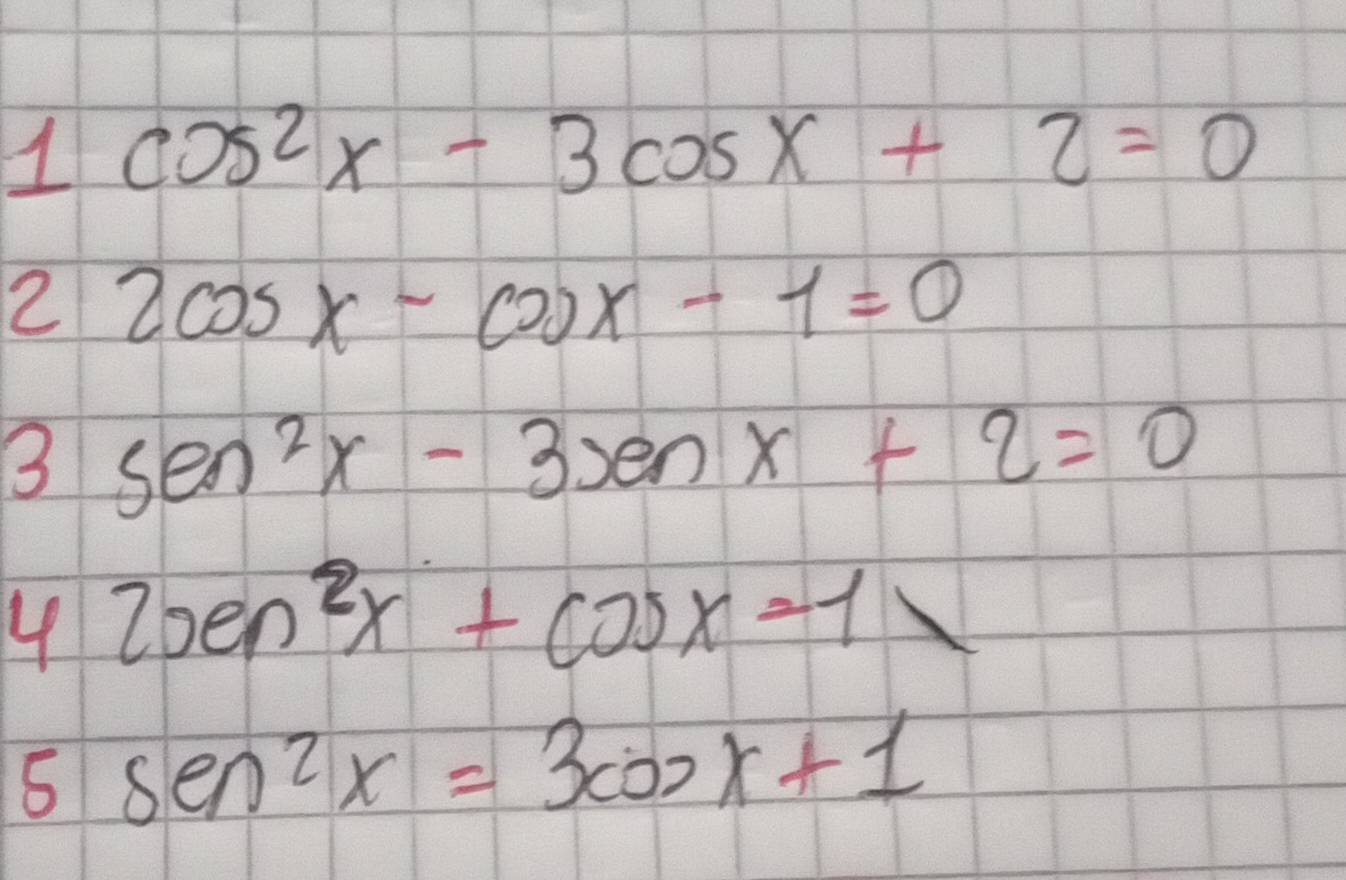 1 cos²x - 3cosx + 2 = 0
2 2cosx - cosx - 1 = 0
3 sen²x - 3senx + 2 = 0
4 2sen²x + cosx = 1 \
5 sen²x = 3cosx + 1